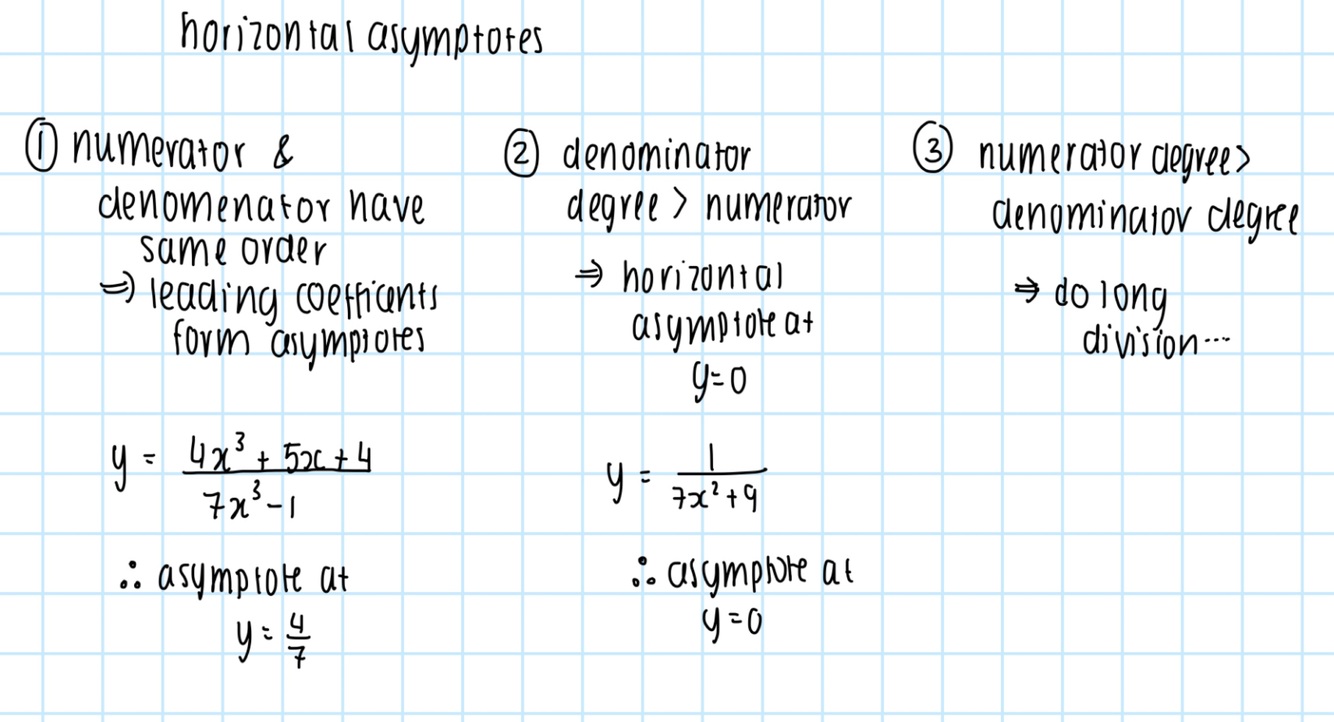 horizontal asymptotes
① numerator &
denomenator have
same order
⇒ leading coefficants
form asymptotes
y = (4x³ + 5x + 4)/(7x³ - 1)
∴ asymptote at
y = 4/7
② denominator
degree > numerator
⇒ horizontal
asymptote at
y=0
y = 1/(7x² + 9)
∴ asymptote at
y=0
③ numerator degree >
denominator degree
⇒ do long
division...